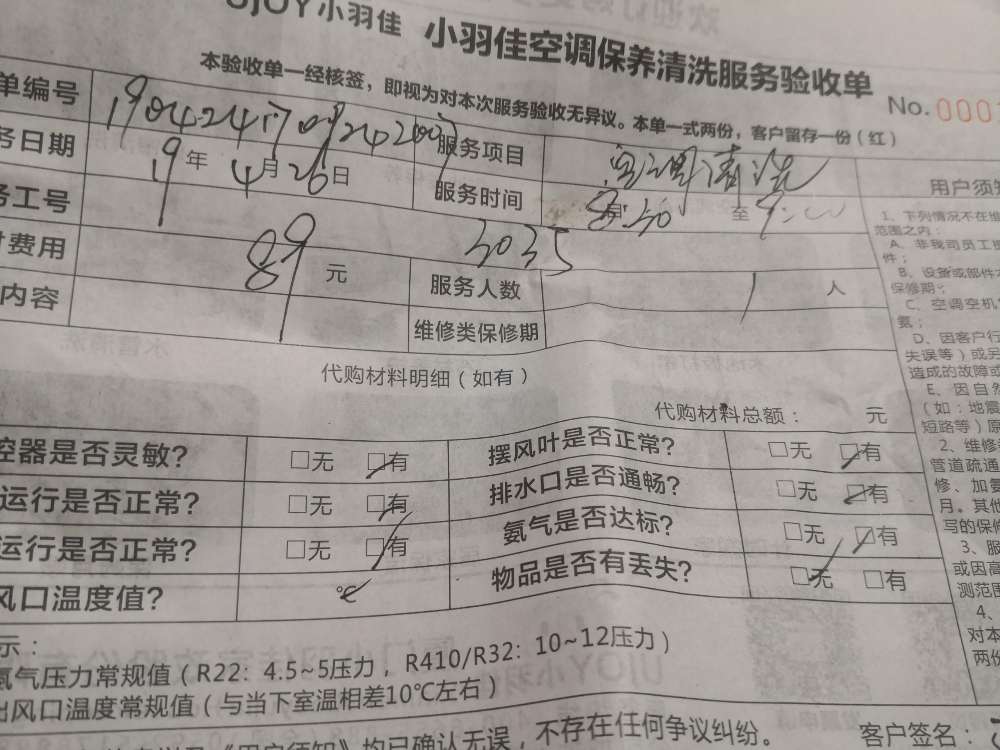 UJOY小羽佳 小羽佳空调保养清洗服务验收单
本验收单一经核签，即视为对本次服务验收无异议。本单一式两份，客户留存一份（红） No.000
单编号 服务项目 空调清洗
务日期 19年4月26日 服务时间 8:30 至 9:00
务工号 3035
费用 89 元 服务人数 1 人
内容 维修类保修期
代购材料明细（如有）
代购材料总额： 元
控器是否灵敏? □无 □有 摆风叶是否正常? □无 □有
运行是否正常? □无 □有 排水口是否通畅? □无 □有
运行是否正常? □无 □有 氨气是否达标? □无 □有
风口温度值? ℃ 物品是否有丢失? □无 □有
示：
氨气压力常规值（R22：4.5~5压力，R410/R32：10~12压力）
出风口温度常规值（与当下室温相差10℃左右）
《用户须知》均已确认无误，不存在任何争议纠纷。 客户签名：
用户须知
1、下列情况不在维
范围之内：
A、非我司员工
件；
B、设备或部件
保修期；
C、空调空机
氨；
D、因客户行
失误等）或另
造成的故障或
E、因自然
（如：地震
短路等）原
2、维修
管道疏通
修、加氨
月。其他
写的保修
3、服
或因高
测范围
4、
对本
两份